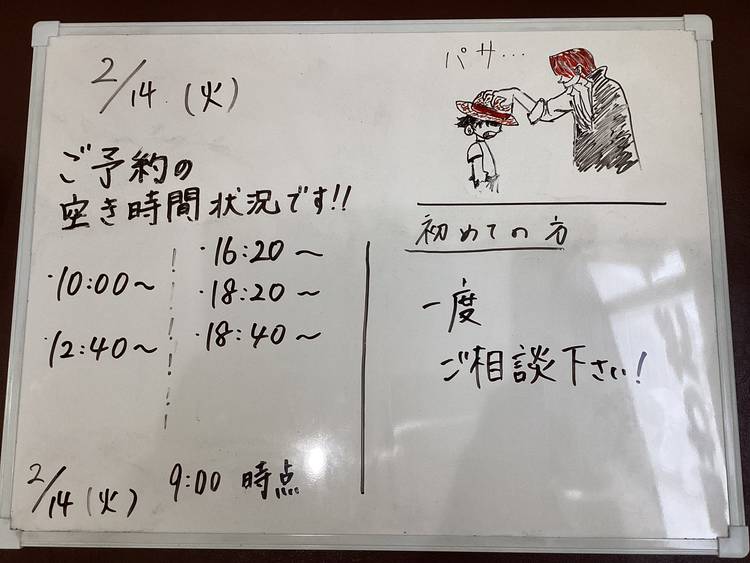 2/14 (火)
ご予約の
空き時間状況です!!
・10:00〜
・12:40〜
・16:20〜
・18:20〜
・18:40〜
2/14 (火) 9:00 時点
パサ…
初めての方
一度
ご相談下さい!